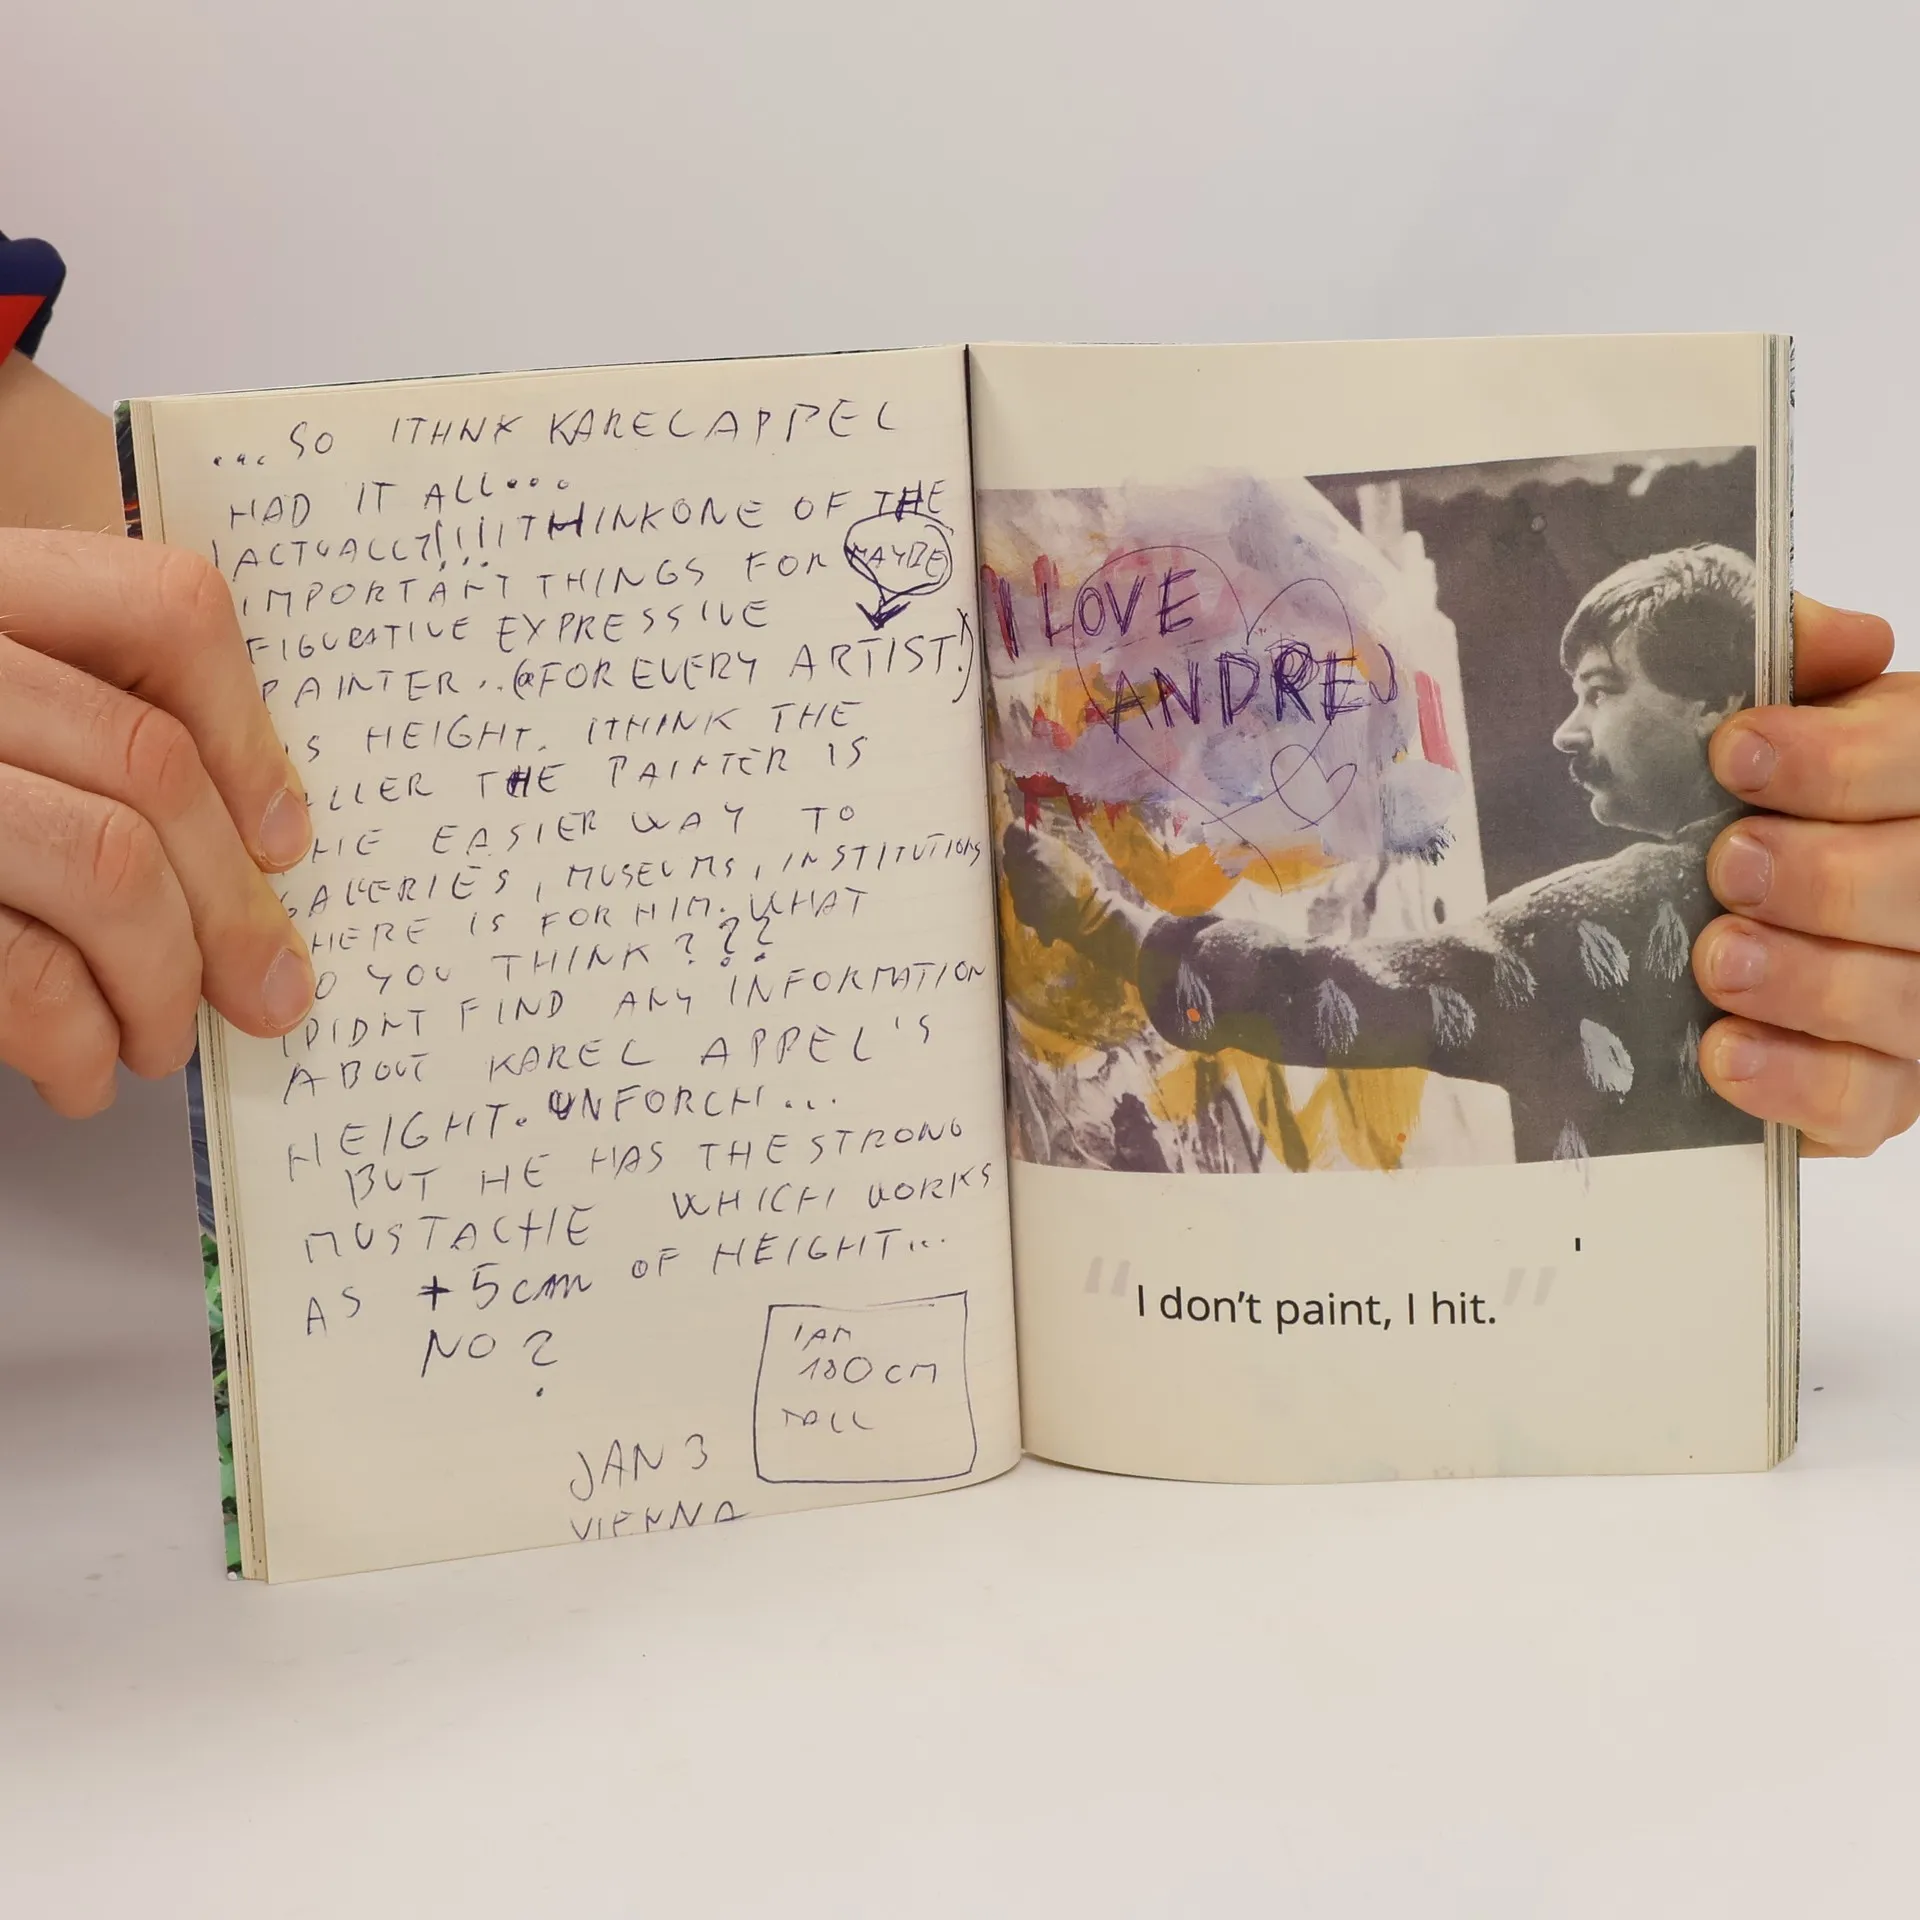 ... SO ITHNK KAREL APPEL
HAD IT ALL...
ACTUALLY!!!! ITHINK ONE OF THE
IMPORTANT THINGS FOR MAYBE
FIGURATIVE EXPRESSIVE
PAINTER.. (FOR EVERY ARTIST!)
IS HEIGHT. ITHINK THE
LLER THE PAINTER IS
HE EASIER WAY TO
GALLERIES, MUSEUMS, INSTITUTIONS
HERE IS FOR HIM. WHAT
O YOU THINK ???
IDIDNT FIND ANY INFORMATION
ABOUT KAREL APPEL'S
HEIGHT. UNFORCH...
BUT HE HAS THE STRONG
MUSTACHE WHICH WORKS
AS +5cm OF HEIGHT...
NO?
I AM
180 CM
TALL
JAN 3
VIENNA
I LOVE
ANDREJ
"I don't paint, I hit."